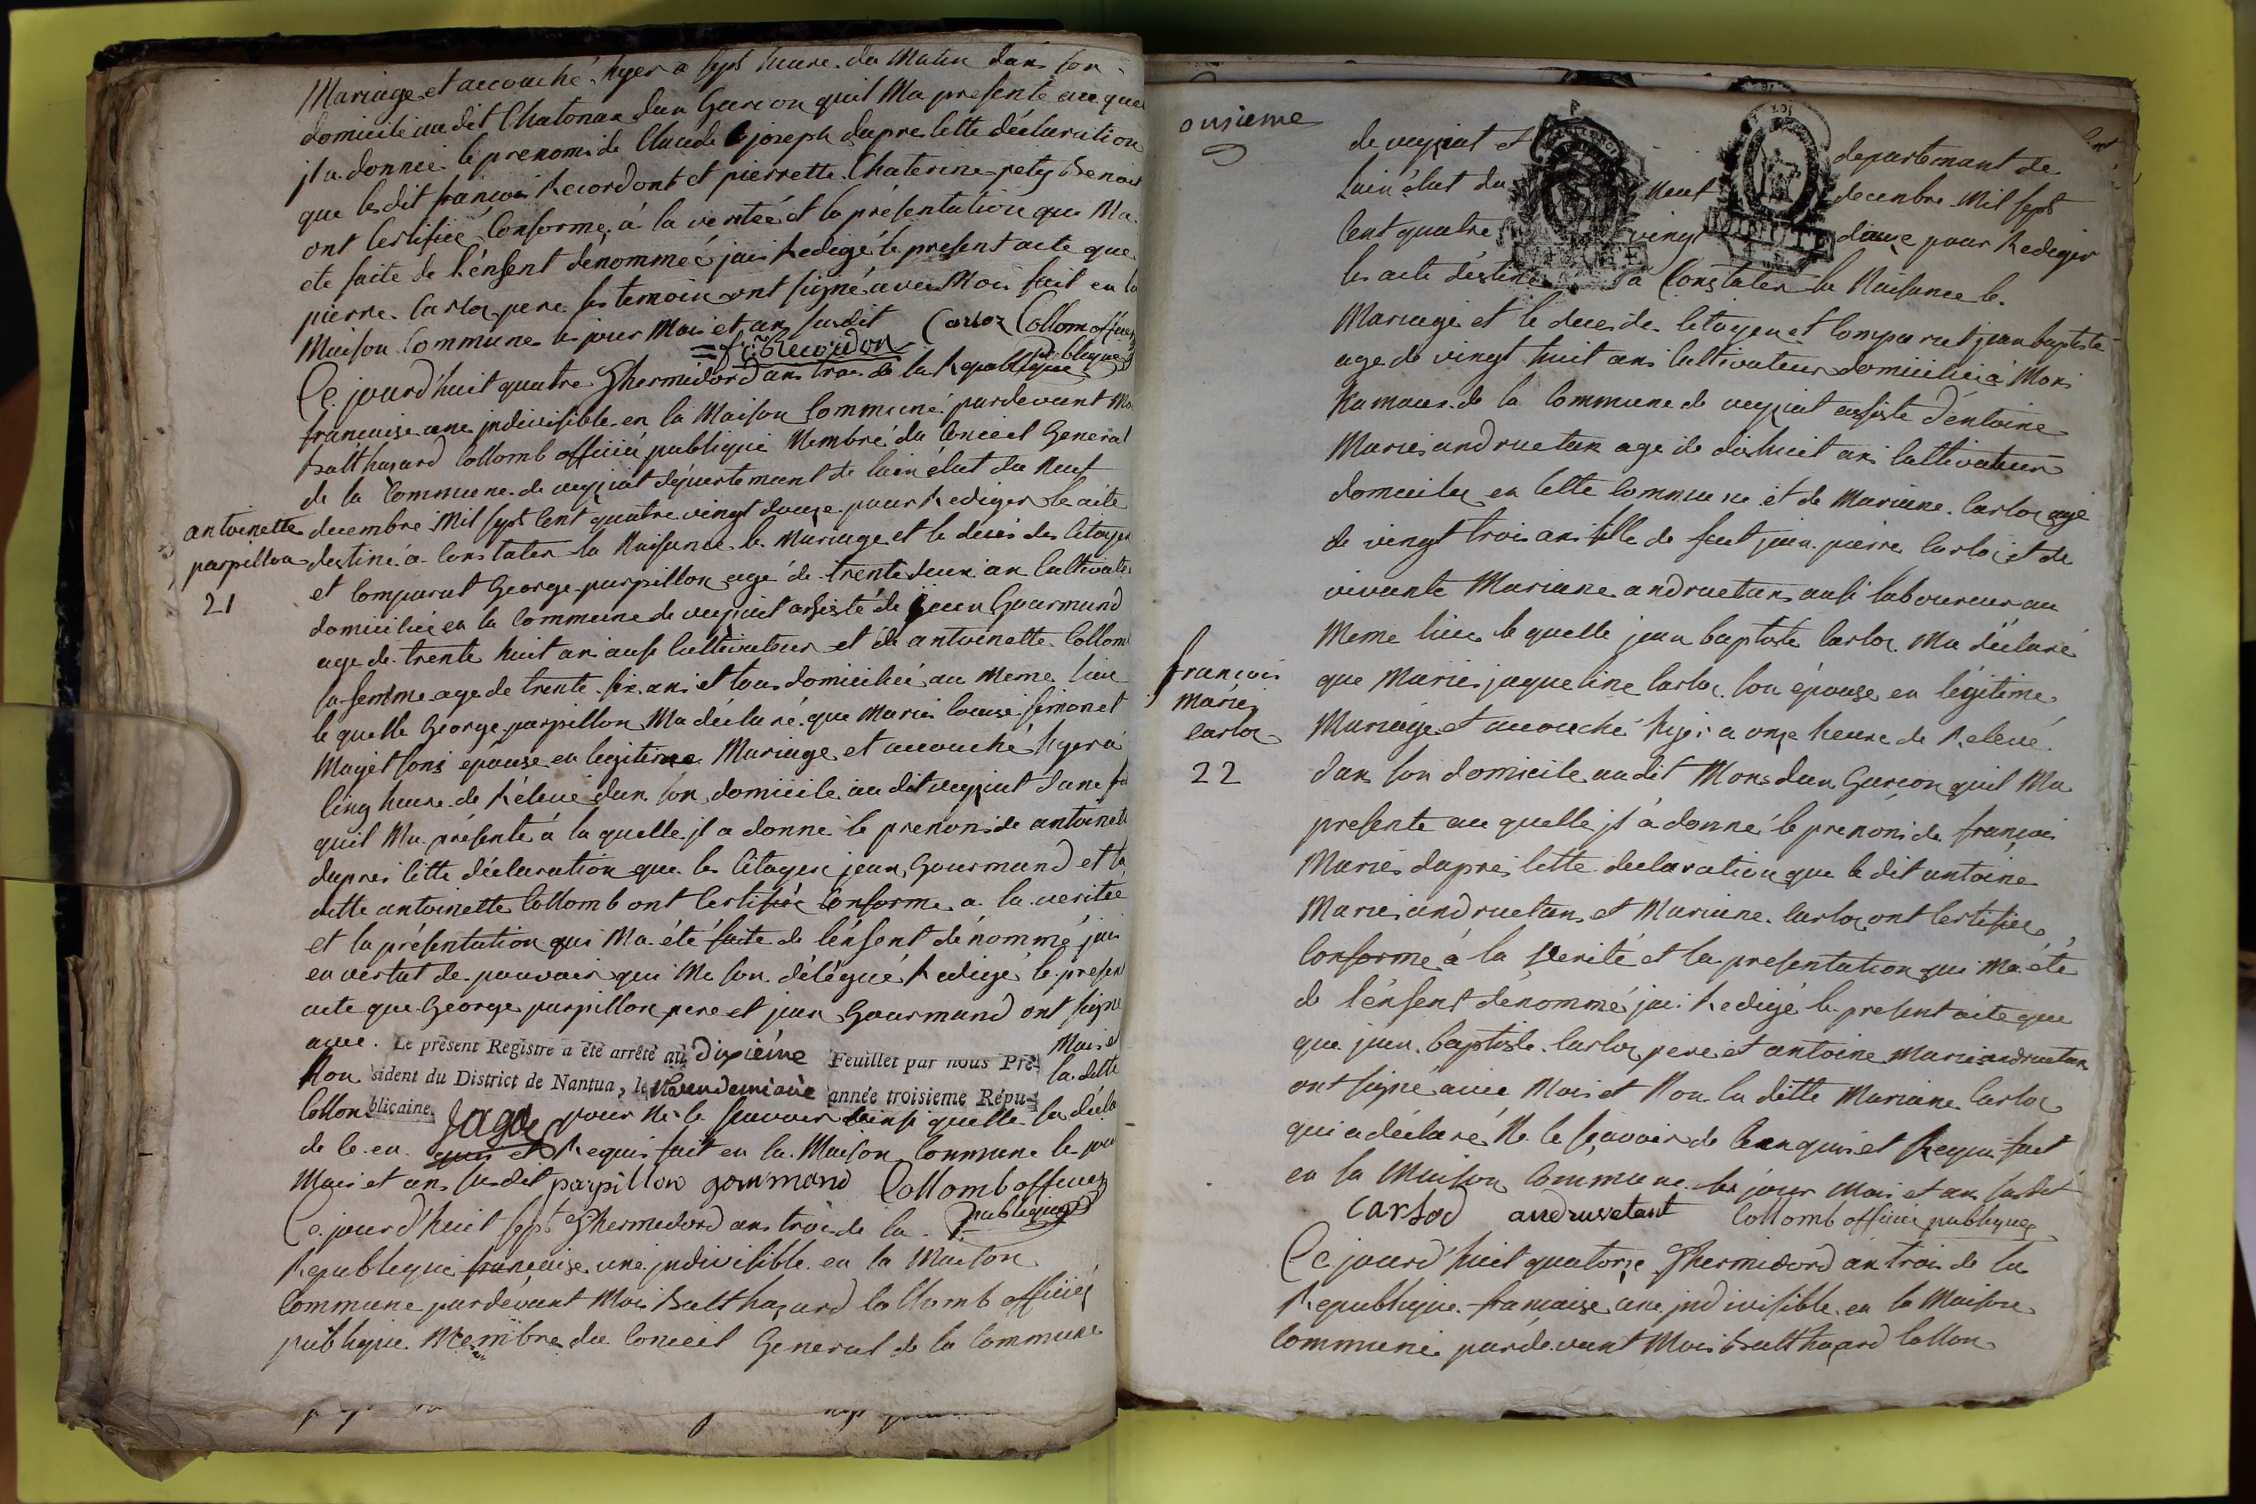 Mariage et accouché hyer a sept heure du Matin dans son
domicile au dit Chatonax dun Garcon quil Ma presenté au quel
jl a donnée le prenoms de Claude joseph dapres cette déclaration
que lesdit françois Recordont et pierrette Chaterine pety Benoit
ont Certifiée Conforme à la veritée et la présentation qui Ma
ete faite de l'énfent dénommée jais Redigé le present acte que
pierre Carloz pere les temoin ont signé avec Moi fait en la
Maison Commune le jour Mois et an susdit Carloz Collomb officiez
publique
Ce jourd'huit quatre Thermidord ans trois de la Republique
francaise une jndivisible en la Maison Communé pardevant Moi
Balthazard Collomb officié publique Membré du Conceil General
de la Commune de veyziat département de lain élut du Neuf
decembre Mil sept Cent quatre vingt douze pour Rediger le acte
destiné a Constater la Naisance le Mariage et le décès des Citoyen
et Comparut George parpillon agé de trente deux an Cultivateur
domiciliée en la Commune de veyziat assisté de jean Gourmand
age de trente huit an ausi Cultivateur et de antoinette Collomb
sa femme age de trente six ans et tous domiciliée au Meme lieu
le quelle George parpillon Ma déclaré que Marie louise simonet
Mayet sons épouse en legitime Mariage et accouché hyer à
Cinq heure de Rélevé dans son domicile au dit veyziat d'une
quil Ma présenté à la quelle jl a donné le prénoms de antoinette
dapres cette déclaration que les Citoyen jean Gourmand et la
ditte antoinette Collomb ont Certifiée Conforme a la veritée
et la présentation qui Ma été faite de lénfent dénommé jai
en vertut de pouvoir qui Me son délégué Redigé le present
acte que George parpillon pere et jean Gourmand ont signé
avec Mois et
Non la ditte
Collomb
Le présent Registre a été arrêté au Dixiéme Feuillet par nous Pré-
sident du District de Nantua, le Vendemiaire année troisieme Répu-
blicaine. Jagot
pour Ne le scavoir ainsi quelle la décla
de ce en quis et Requis fait en la Maison Commune le jour
Mois et ans susdit parpillon gourmand Collomb officiez
publique
Ce jourd'huit sept Thermidord ans trois de la
Republique francaise une jndivisible en la Maison
Commune pardevant Moi Balthazard Collomb officiéz
publique Membre du Conceil General de la Commune
antoinette
parpillon
21
onsieme
de veyziat et departemant de
lain élut du Neuf decembre Mil sept
Cent quatre vingt douze pour Rediger
les acte déstiné à Constater la Naisance le
MINUTE
Mariage et le deces des Citoyen et Comparut jean baptiste
age de vingt huit ans Cultivateur domiciliée à Mons
hamaux de la Commune de veyziat assisté d'éntoine
Marie andruetan age de dixhuit ans Cultivateur
domicilez en Cette Commune et de Mariane Carloz agé
de vingt trois ans fille de feut jean pierre Carloz et de
vivante Mariane andruetan ausi laboureur au
Meme lieu le quelle jean baptiste Carloz Ma déclaré
que Marie jaqueline Carloz son épouse en légitime
Mariage et accouché hyer a onze heure de Relevé
dans son domicile audit Mons dun Garcon quil Ma
presenté au quelle jl à donné le prenoms de francois
Marie dapres Cette declaration que le dit antoine
Marie andruetan et Mariane Carloz ont Certifiée
Conforme à la verité et la presentation qui Ma été
de l'énfent dénommé jai Redigé le present acte que
que jean baptiste Carloz pere et antoine Marie andruetan
ont signé avec Moi et Non la ditte Mariane Carloz
qui a déclaré Ne le scavoir de Ce enquis et Requi fait
en la Maison Commune les jour Mois et an susdit
carlod andruetant Collomb officié publique
Ce jourd'huit quatorze Thermidord an trois de la
Republique francaise une jndivisible en la Maison
Commune pardevant Moi Balthazard Collom
francois
Marie
Carloz
22